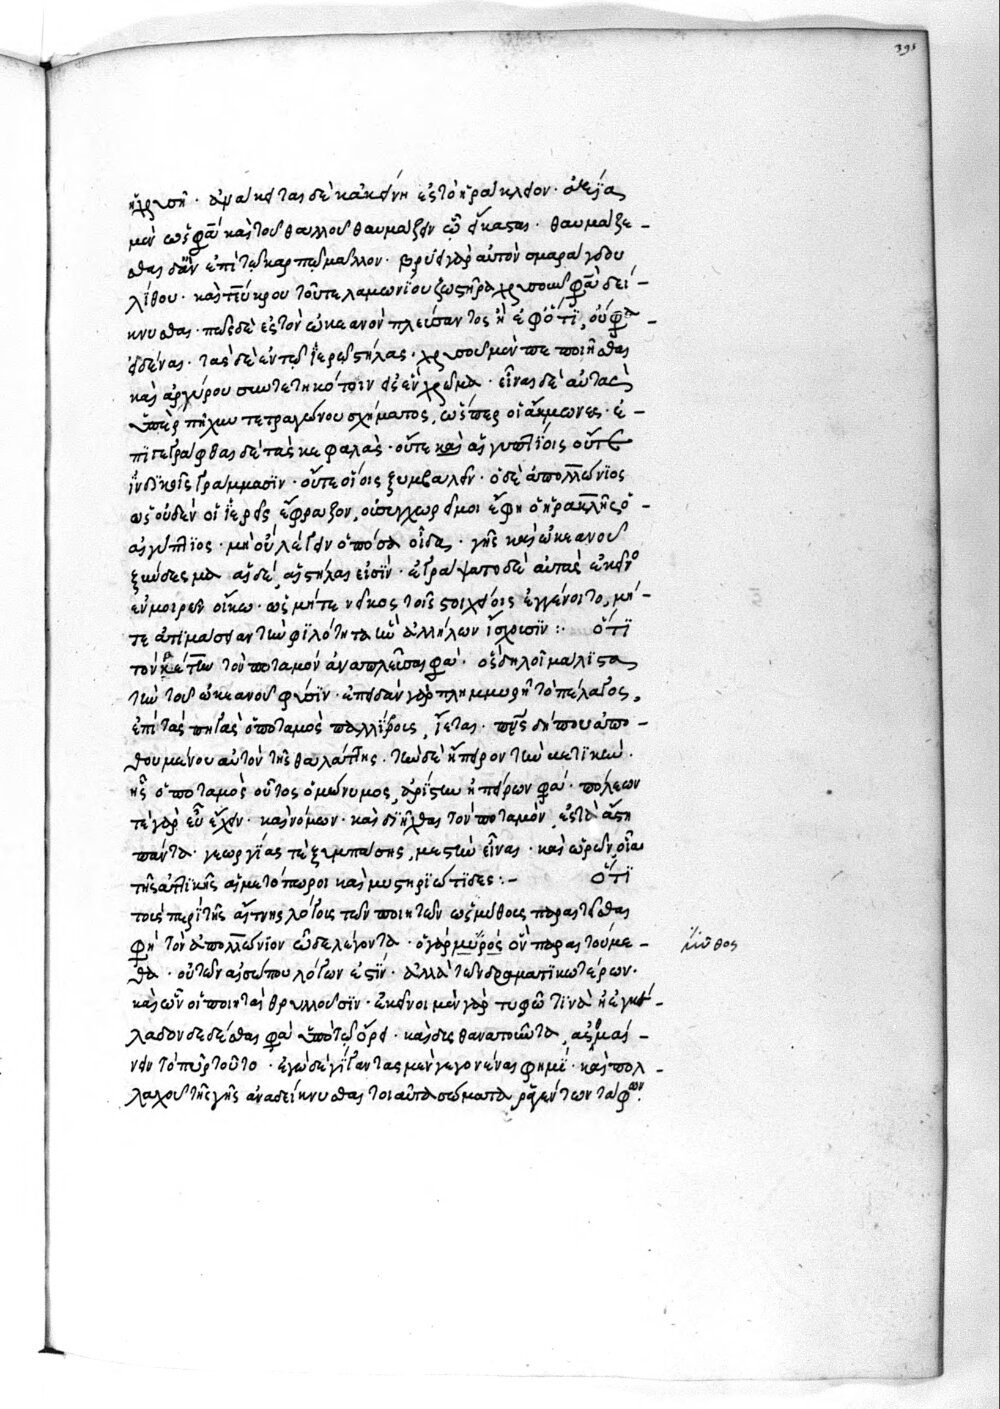 391
ἡ χρυσῆ· ἀνακεῖσθαι δὲ κἀκείνη ἐς τὸ ἡράκλειον· ἀξία
μὲν ὥς φασὶ καὶ τοῦ θαλλοῦ θαυμάζειν ᾧ εἴκασται· θαυμάζε-
σθαι δ' ἂν ἐπὶ τῷ καρπῷ μᾶλλον· βρύειν γὰρ αὐτὸν σμαράγδου
λίθου· καὶ τεύκρου τοῦ τελαμωνίου ζωστῆρα χρυσοῦν φασὶ δεί-
κνυσθαι· πῶς δὲ ἐς τὸν ὠκεανὸν πλεύσαντος ἢ ἐφ' ὅτι, οὔ φασὶ
εἰδέναι· τὰς δὲ ἐν τῷ ἱερῷ στήλας· χρυσοῦ μὲν πεποιῆσθαι
καὶ ἀργύρου συντετηκότοιν εἰς ἓν χρῶμα· εἶναι δὲ αὐτὰς
ὑπὲρ πῆχυν τετραγώνου σχήματος, ὥσπερ οἱ ἄκμωνες· ἐ-
πιγεγράφθαι δὲ τὰς κεφαλὰς· οὔτε καὶ αἰγυπτίοις οὔτε
ἰνδικοῖς γράμμασιν· οὔτε οἵοις ξυμβαλεῖν· ὁ δὲ ἀπολλώνιος
ὡς οὐδὲν οἱ ἱερεῖς ἔφραζον, οὐ συγχωρεῖ μοι ἔφη ὁ ἡρακλῆς ὁ
αἰγύπτιος· μὴ οὐ λέγειν ὁπόσα οἶδα· γῆς καὶ ὠκεανοῦ
ξύνδεσμα αἵδε αἱ στῆλαι εἰσίν· ἐγράψατο δὲ αὐτὰς ἐκεῖνος
ἐν μοιρῶν οἴκῳ· ὡς μήτε νεῖκος τοῖς στοιχείοις ἐγγένοιτο, μή-
τε ἀτιμάσειαν τὴν φιλότητα ἣν ἀλλήλων ἴσχουσιν :· ὅτι
τὸν βαῖτιν τὸν ποταμὸν ἀναπλεῦσαι φασὶ· ὃς δηλοῖ μάλιστα
τὴν τοῦ ὠκεανοῦ φύσιν· ἐπειδὰν γὰρ πλημμυρῇ τὸ πέλαγος,
ἐπὶ τὰς πηγὰς ὁ ποταμὸς παλίρρους, ἵεται· πνεύματος δήπου ἀπο-
θουμένου αὐτὸν τῆς θαλάττης· τὴν δὲ ἤπειρον τὴν βαιτικὴν·
ἧς ὁ ποταμὸς οὗτος ὁμώνυμος, ἀρίστην ἠπείρων φασί· πόλεων
τε γὰρ εὖ ἔχειν· καὶ νόμων· καὶ διῆχθαι τὸν ποταμὸν ἐς τὰ ἄστη
πάντα· γεωργίας τε ξυμπάσης, μεστὴν εἶναι· καὶ ὡρῶν, οἷαι
τῆς ἀττικῆς αἱ μετόπωροι καὶ μυστηριώτιδες :- ὅτι
τοῖς περὶ τῆς αἴτνης λόγοις τῶν ποιητῶν ὡς μύθοις παραιτεῖσθαι
φησὶ τὸν ἀπολλώνιον ὧδε λέγοντα· ὁ γὰρ μῦθος ὃν παραιτούμε-
θα· οὐ τῶν αἰσώπου λόγων ἐστίν· ἀλλὰ τῶν δραματικωτέρων·
καὶ ὧν οἱ ποιηταὶ θρυλλοῦσιν· ἐκεῖνοι μὲν γὰρ τυφῶ τινὰ ἢ ἐγκέ-
λαδον δεδέσθαι φασὶ ὑπὸ τῷ ὄρει· καὶ δυσθανατοῦντα, ἀσθμαί-
νειν τὸ πῦρ τοῦτο· ἐγὼ δὲ γίγαντας μὲν γεγονέναι φημί· καὶ πολ-
λαχοῦ τῆς γῆς ἀναδείκνυσθαι τοιαῦτα σώματα ῥαγέντων τάφων·
μῦθος